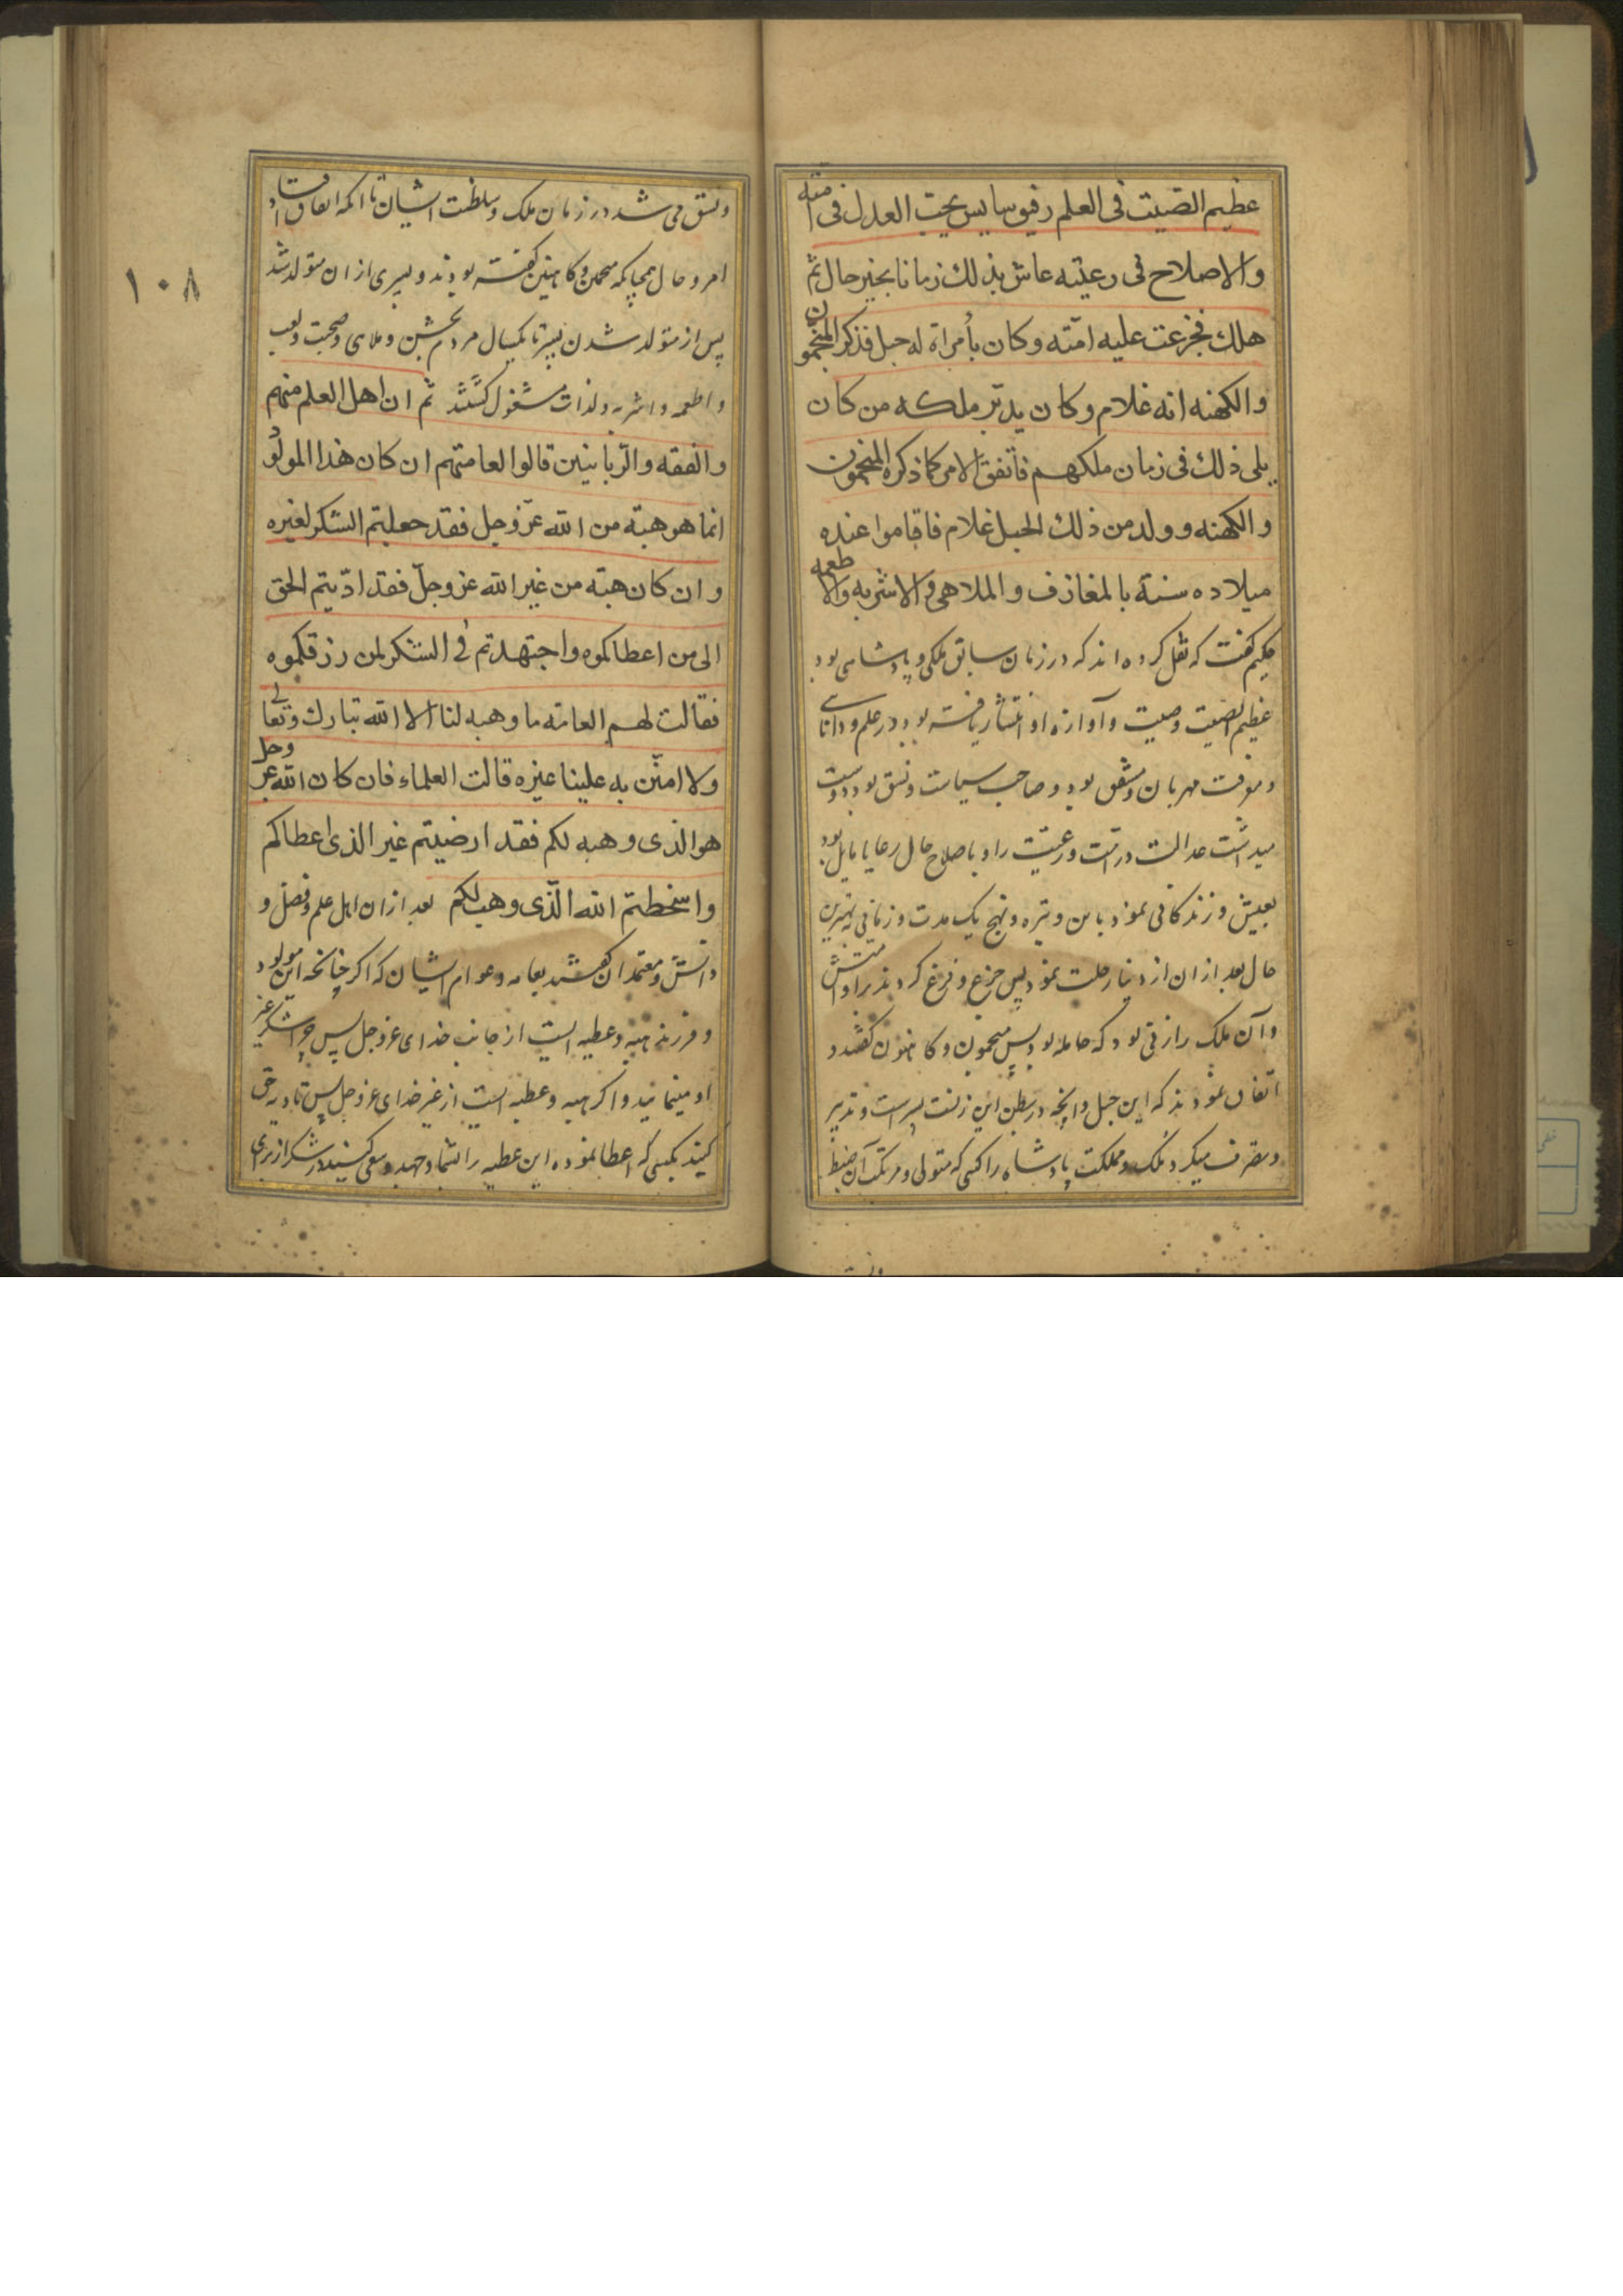 عظیم الصّیت فی العلم رفیق سایس یحبّ العدل فی امته
والاصلاح فی رعیّته عاش بذلك زمانا بخیر حال ثمّ
هلك فجزعت علیه امّته وكان بأمرأة له حبل فذكر المنجمون
والكهنه انه غلام وكان یدبّر ملكه من كان
یلی ذلك فی زمان ملكهم فاتفق الامر كما ذكره المنجمون
والكهنه وولد من ذلك الحبل غلام فاقاموا عنده
میلاده سنة بالمغازف والملاهی والاشربه والاطعمه
حکیم گفت که نقل کرده اند که در زمان سابق ملکی و پادشاهی بود
عظیم الصیت وصیت و آوازه او انتشار یافته بود در علم و دانائی
و موفت مهربان و مشفق بود و صاحب سیاست و نسق بود و دوست
میداشت عدالت در امّت و رعیّت را و باصلاح حال رعایا مایل بود
بعیش و زندگانی نمود باین وتیره و نهج یک مدت و زمانی به بهترین
حال بعد از ان از دنیا رحلت نمود پس جزع و فزع کردند بر او امتش
و آن ملک را زنی بود که حامله بود پس منجمون و کاهنون گفتند و
اتفاق نمودند که این حبل و آنچه در بطن این زنست پسر است و تدبیر
و تصرف میکرد ملک و مملکت پادشاه را کسی که متولی و مرتکب آن ضبط
و نسق می شد در زمان ملک و سلطنت ایشان تا آنکه اتفاق افتاد
امر و حال همچنانکه منجمین و کاهنین گفته بودند و پسری از ان متولد شد
پس از متولد شدن پسر تا یکسال مردم بجشن و ملاهی و صحبت و لعب
و اطعمه و اشربه و لذات مشغول گشتند ثمّ ان اهل العلم منهم
والفقه والرّبانیّین قالوا لعامتهم ان كان هذا المولود
انما هو هبة من الله عزّ وجل فقد جعلتم الشكر لغیره
وان كان هبة من غیر الله عز وجلّ فقد ادّیتم الحق
الی من اعطاكموه واجتهدتم فی الشكر لمن رزقكموه
فقالت لهم العامّة ما وهبه لنا الا الله تبارك وتعالی
ولا امتّن به علینا غیره قالت العلماء فان كان الله عز وجل
هو الذی وهبه لكم فقد ارضیتم غیر الذی اعطاكم
واسخطتم الله الّذی وهب لكم بعد از ان اهل علم و فضل و
دانش و معتمدان گفتند بعامه و عوام ایشان که اگر چنانچه این مولود
و فرزند هبه و عطیه ایست از جانب خدای عز وجل پس چرا شکر غیر
او مینمائید و اگر هبه و عطیه ایست از غیر خدای عز وجل پس تادیه حق
کنید بکسی که اعطا نموده این عطیه را بشما و جهد و سعی کنید در شکر از برای
۱۰۸